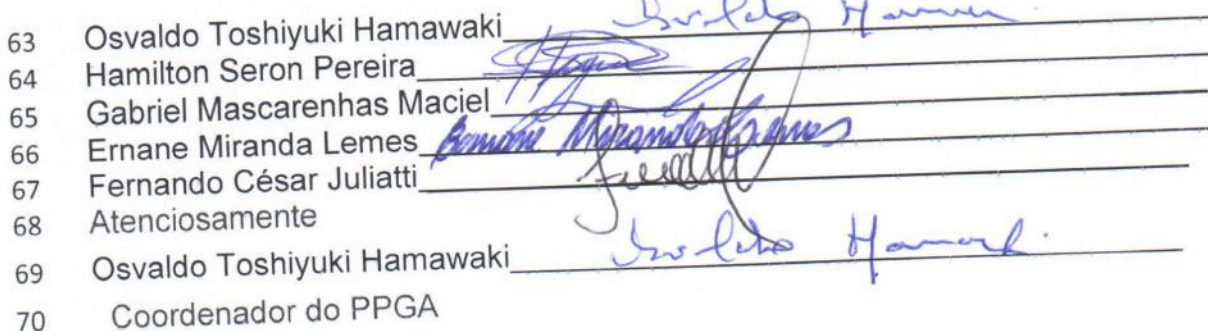 63 Osvaldo Toshiyuki Hamawaki
64 Hamilton Seron Pereira
65 Gabriel Mascarenhas Maciel
66 Ernane Miranda Lemes Ernane Miranda Lemes
67 Fernando César Juliatti
68 Atenciosamente
69 Osvaldo Toshiyuki Hamawaki
70 Coordenador do PPGA